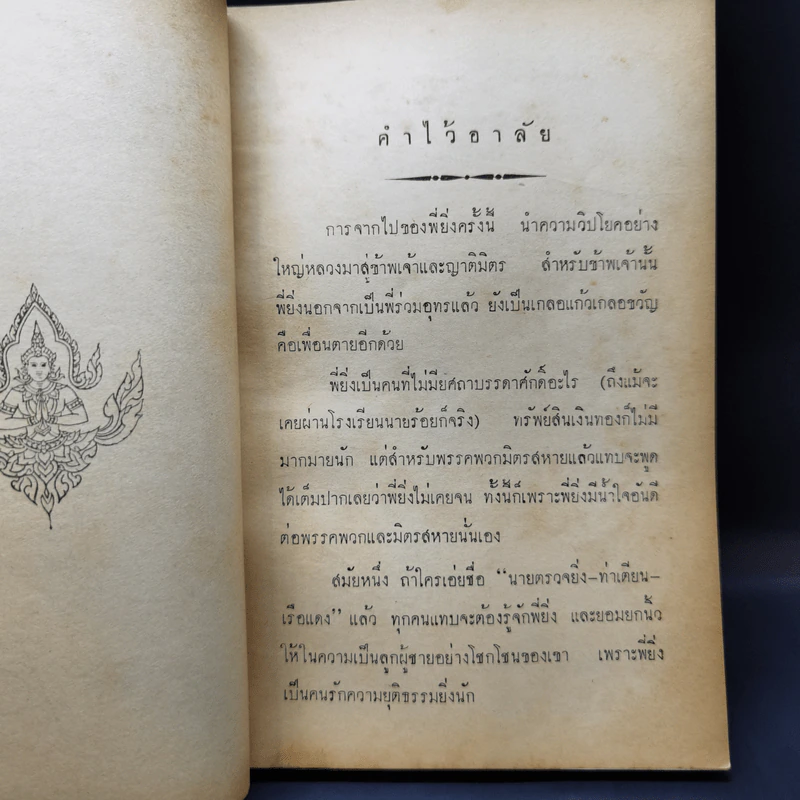 คำไว้อาลัย
การจากไปของพี่ยิ่งครั้งนี้ นำความวิปโยคอย่าง
ใหญ่หลวงมาสู่ข้าพเจ้าและญาติมิตร สำหรับข้าพเจ้านั้น
พี่ยิ่งนอกจากเป็นพี่ร่วมอุทรแล้ว ยังเป็นเกลอแก้วเกลอขวัญ
คือเพื่อนตายอีกด้วย
พี่ยิ่งเป็นคนที่ไม่มียศถาบรรดาศักดิ์อะไร (ถึงแม้จะ
เคยผ่านโรงเรียนนายร้อยก็จริง) ทรัพย์สินเงินทองก็ไม่มี
มากมายนัก แต่สำหรับพรรคพวกมิตรสหายแล้วแทบจะพูด
ได้เต็มปากเลยว่าพี่ยิ่งไม่เคยจน ทั้งนี้ก็เพราะพี่ยิ่งมีน้ำใจอันดี
ต่อพรรคพวกและมิตรสหายนั่นเอง
สมัยหนึ่ง ถ้าใครเอ่ยชื่อ “นายตรวจยิ่ง–ท่าเตียน–
เรือแดง” แล้ว ทุกคนแทบจะต้องรู้จักพี่ยิ่ง และยอมยกนิ้ว
ให้ในความเป็นลูกผู้ชายอย่างโชกโชนของเขา เพราะพี่ยิ่ง
เป็นคนรักความยุติธรรมยิ่งนัก